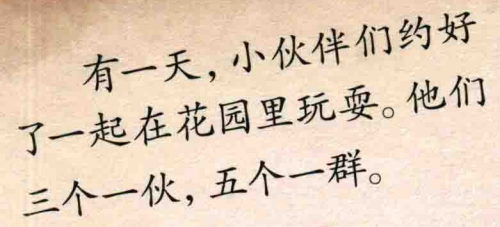 有一天，小伙伴们约好
了一起在花园里玩耍。他们
三个一伙，五个一群。